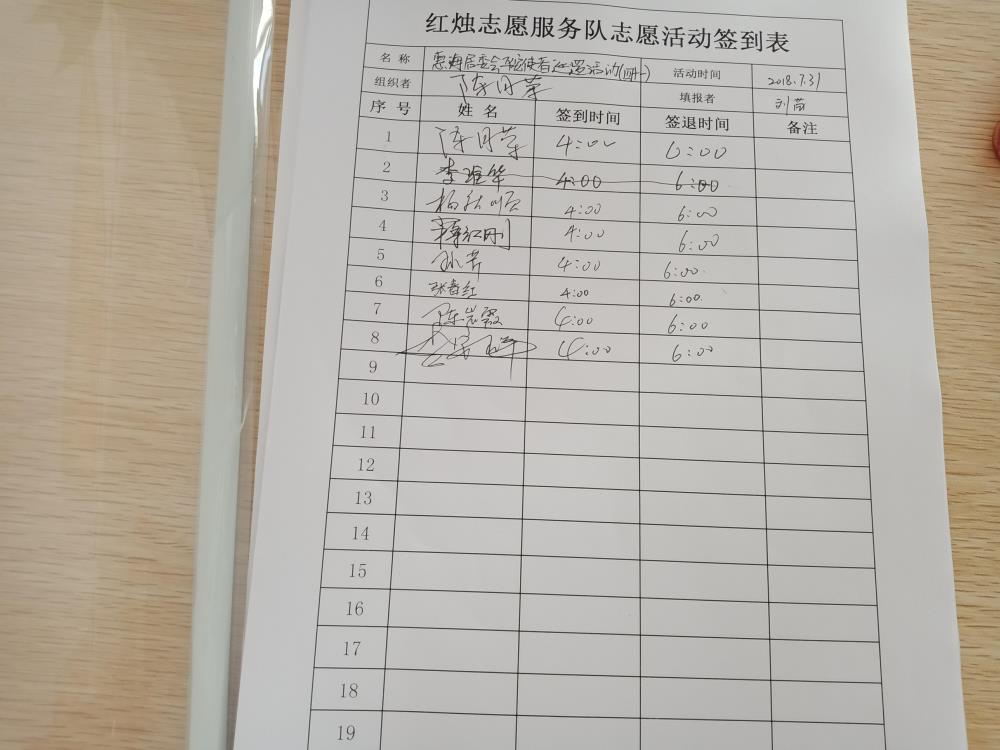 红烛志愿服务队志愿活动签到表
名称 惠海居委会 活动(四) 活动时间 2018.7.31
组织者 陈月荣 填报者 刘芮
序号 姓名 签到时间 签退时间 备注
1 陈月荣 4:00 6:00
2 李 华 4:00 6:00
3 杨 顺 4:00 6:00
4 红刚 4:00 6:00
5 孙芹 4:00 6:00
6 张春红 4:00 6:00
7 陈岩霞 4:00 6:00
8 4:00 6:00
9
10
11
12
13
14
15
16
17
18
19